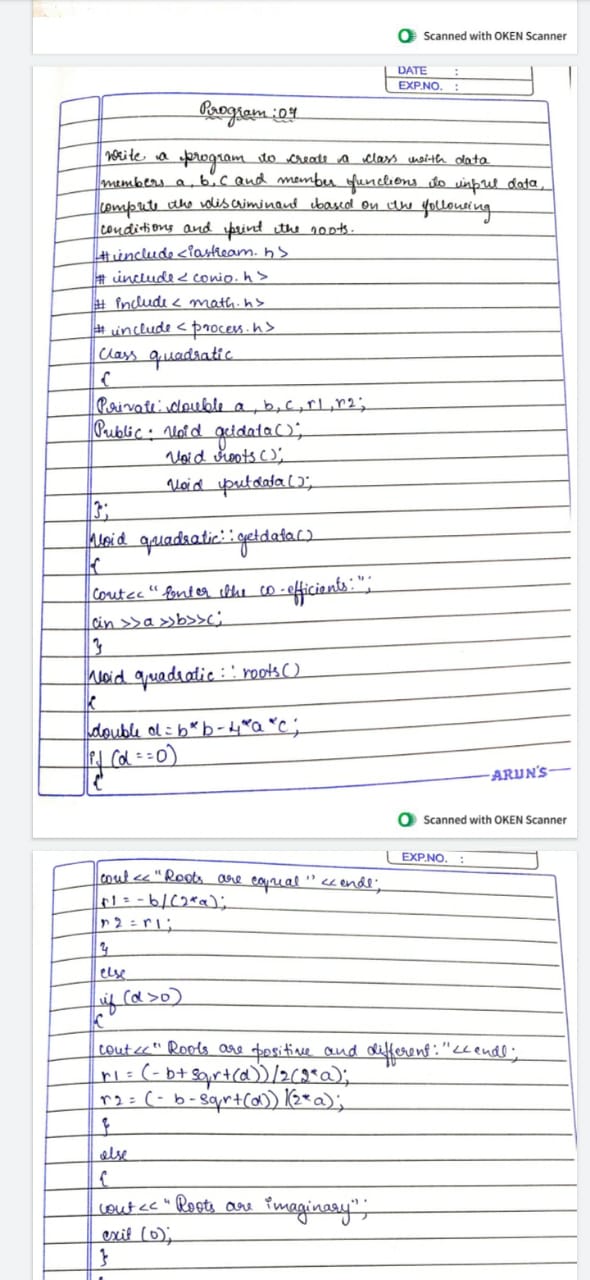 Scanned with OKEN Scanner
DATE :
EXP.NO. :
Program:07
Write a program to create a class with data
members a, b, c and member functions to input data,
compute the discriminant based on the following
conditions and print the roots.
#include<iostream.h>
#include<conio.h>
#include<math.h>
#include<process.h>
Class quadratic
{
Private: double a, b, c, r1, r2;
Public: Void getdata();
Void roots();
Void putdata();
};
Void quadratic::getdata()
{
Cout<<"Enter the co-efficients:";
cin>>a>>b>>c;
}
Void quadratic::roots()
{
double d=b*b-4*a*c;
if (d==0)
{
ARUN'S
Scanned with OKEN Scanner
EXP.NO. :
cout<<"Roots are equal"<<endl;
r1=-b/(2*a);
r2=r1;
}
else
if (d>0)
{
cout<<"Roots are positive and different:"<<endl;
r1=(-b+sqrt(d))/2(2*a);
r2=(-b-sqrt(d))/(2*a);
}
else
{
cout<<"Roots are imaginary";
exit(0);
}